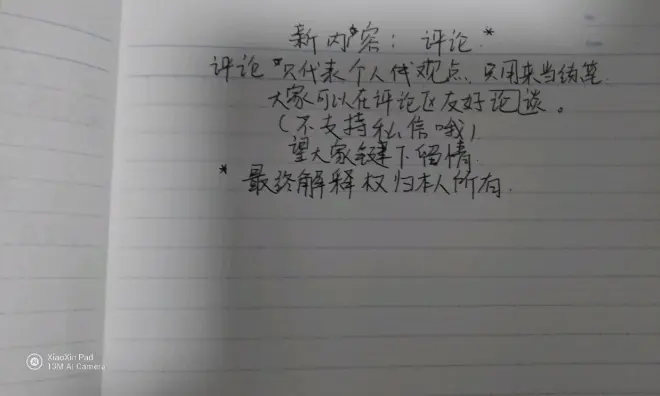 新内容：评论*
评论*只代表个人代观点，只用来当结算
大家可以在评论区友好论谈。
（不支持私信哦）
望大家键下留情
*最终解释权归本人所有.
XiaoXin Pad
13M AI Camera